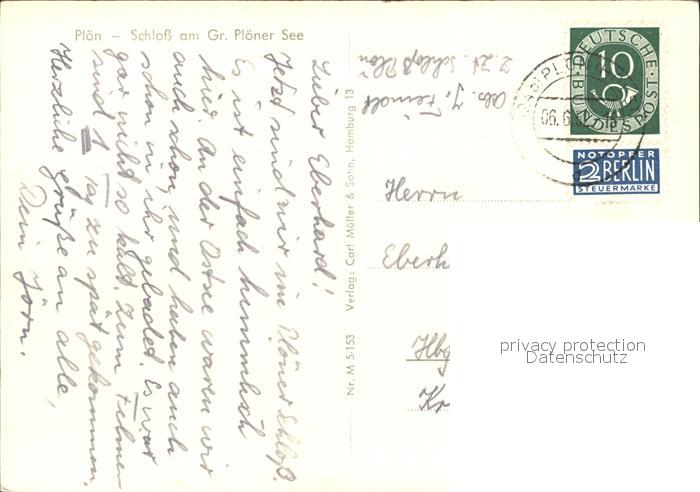 Plön – Schloß am Gr. Plöner See
Lieber Eberhard!
Jetzt sind wir im Plöner Schloß.
Es ist einfach himmlisch
hier. An der Ostsee waren wir
auch schon, und haben auch
schon in ihr gebadet. Es war
gar nicht so kalt. Zum Filmen
sind 1 Tag zu spät gekommen.
Herzliche Grüße an alle,
Dein Jörn.
Nr. M 5-153 Verlag: Carl Müller & Sohn, Hamburg 13
Abs. J.
z. Zt. Schloß Plön
DEUTSCHE BUNDESPOST
10
PLÖN
06.6.
NOTOPFER
2 BERLIN
STEUERMARKE
Herrn
Eberh
Hbg
Kr
privacy protection
Datenschutz